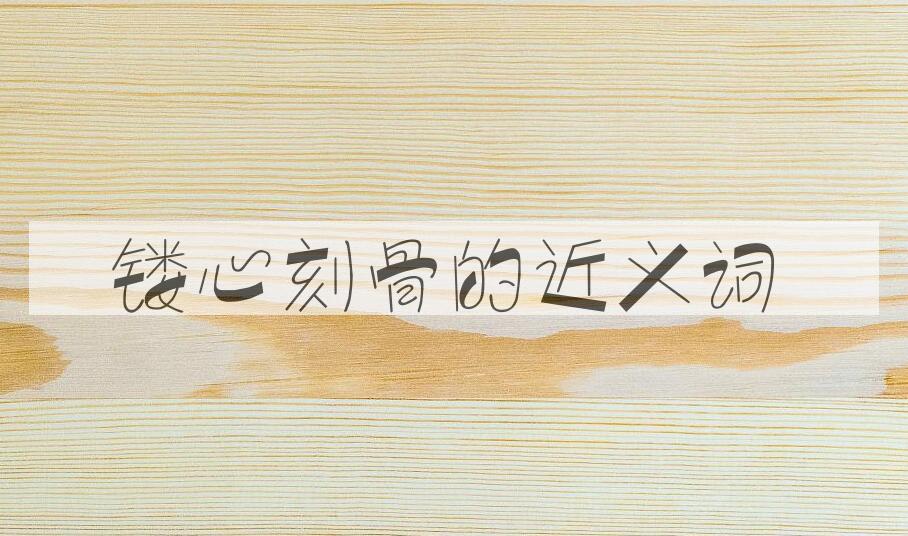 镂心刻骨的近义词